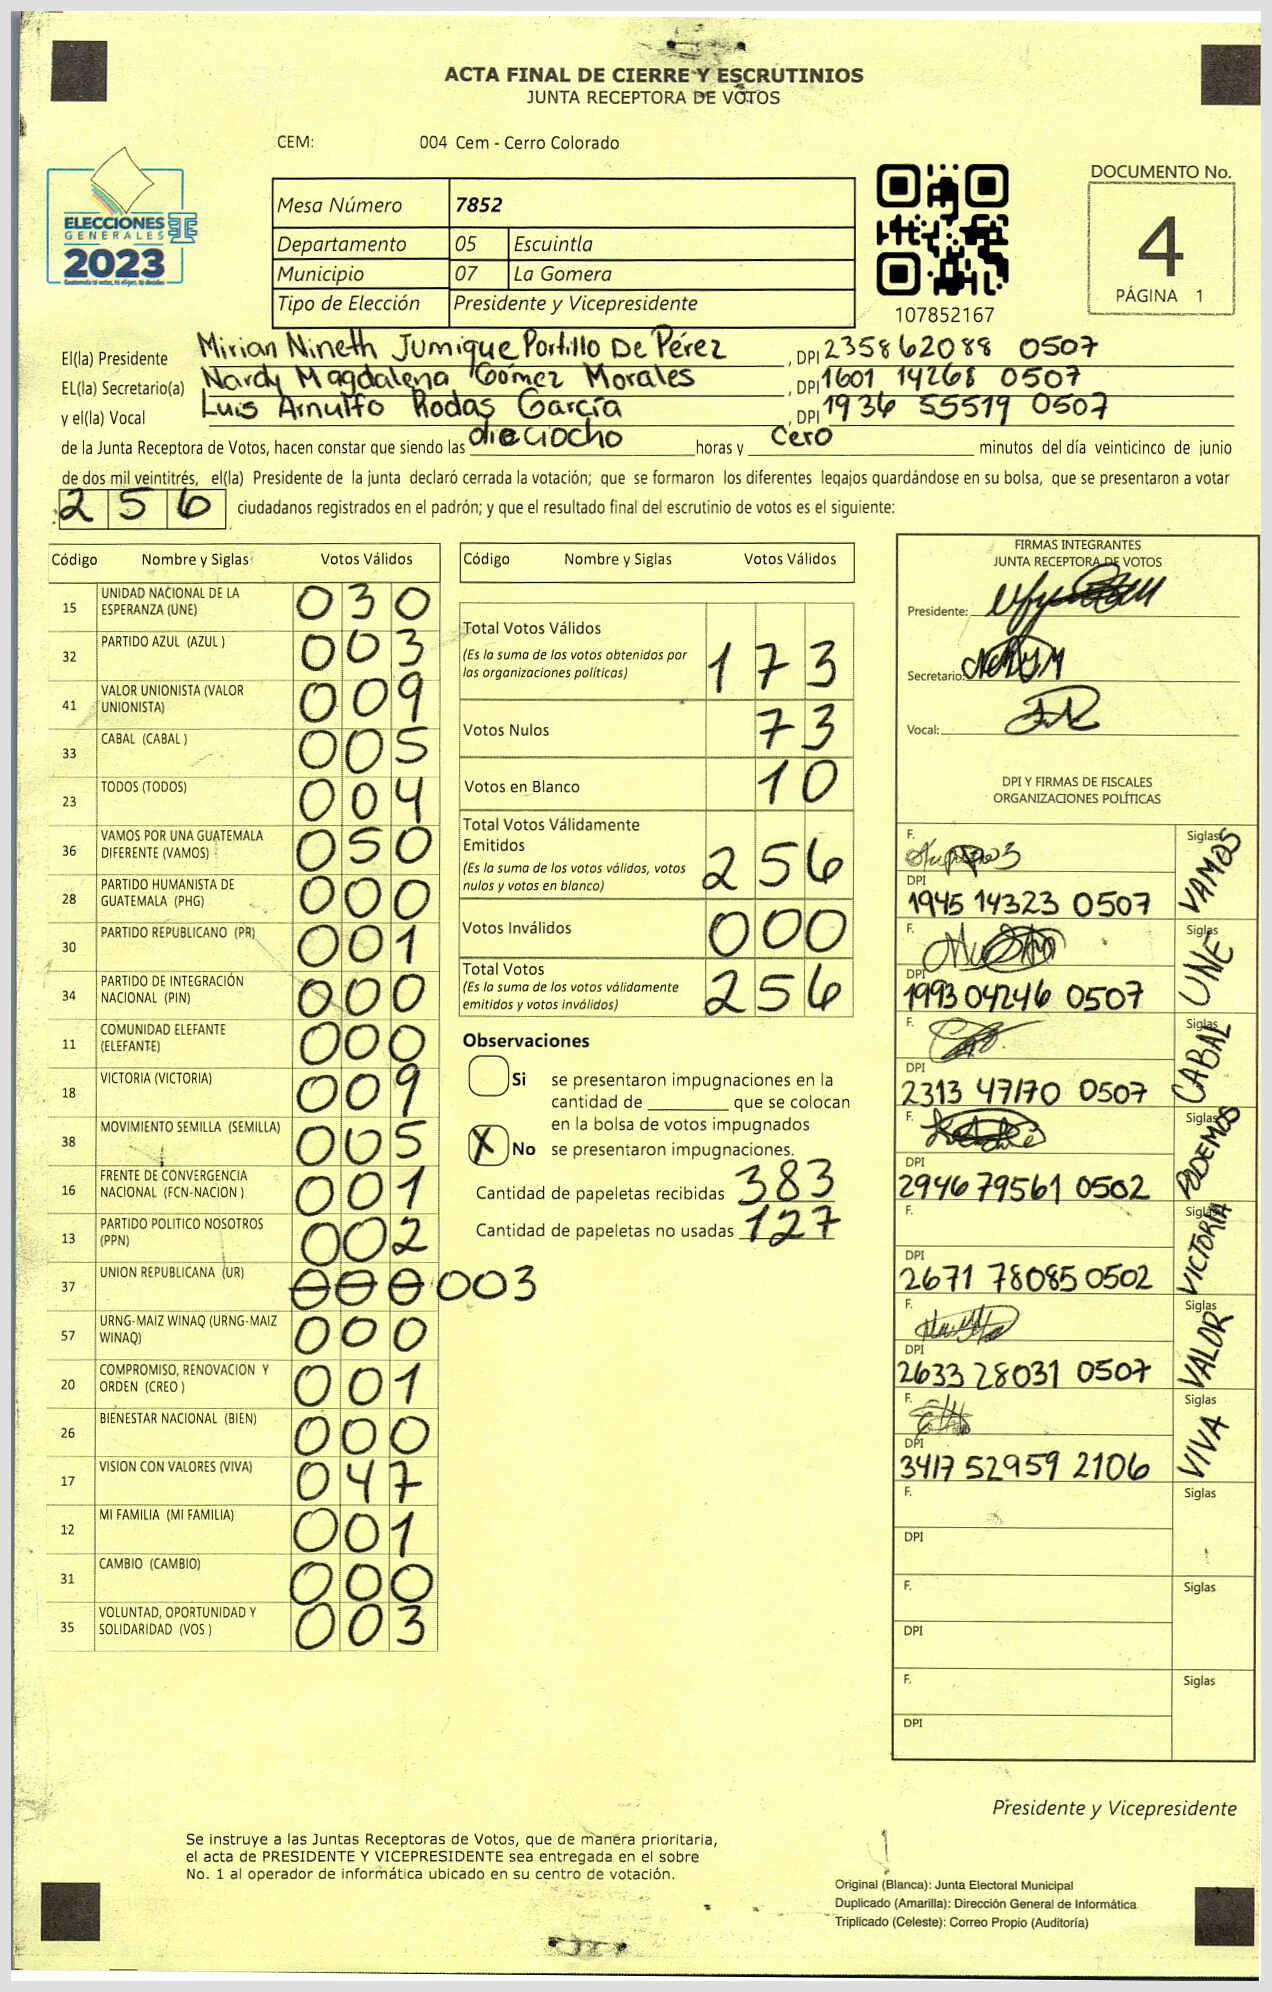 ACTA FINAL DE CIERRE Y ESCRUTINIOS
JUNTA RECEPTORA DE VOTOS
CEM: 004 Cem - Cerro Colorado
ELECCIONES
GENERALES
2023
Mesa Número 7852
Departamento 05 Escuintla
Municipio 07 La Gomera
Tipo de Elección Presidente y Vicepresidente
107852167
DOCUMENTO No.
4
PÁGINA 1
El(la) Presidente Mirian Nineth Jumique Portillo De Pérez, DPI 235862088 0507
EL(la) Secretario(a) Nardy Magdalena Gómez Morales, DPI 1601 14268 0507
y el(la) Vocal Luis Arnulfo Rodas García, DPI 1936 55519 0507
de la Junta Receptora de Votos, hacen constar que siendo las dieciocho horas y cero minutos del día veinticinco de junio
de dos mil veintitrés, el(la) Presidente de la junta declaró cerrada la votación; que se formaron los diferentes legajos quardándose en su bolsa, que se presentaron a votar
256 ciudadanos registrados en el padrón; y que el resultado final del escrutinio de votos es el siguiente:
Código Nombre y Siglas Votos Válidos
15 UNIDAD NACIONAL DE LA ESPERANZA (UNE) 030
32 PARTIDO AZUL (AZUL ) 003
41 VALOR UNIONISTA (VALOR UNIONISTA) 009
33 CABAL (CABAL ) 005
23 TODOS (TODOS) 004
36 VAMOS POR UNA GUATEMALA DIFERENTE (VAMOS) 050
28 PARTIDO HUMANISTA DE GUATEMALA (PHG) 000
30 PARTIDO REPUBLICANO (PR) 001
34 PARTIDO DE INTEGRACIÓN NACIONAL (PIN) 000
11 COMUNIDAD ELEFANTE (ELEFANTE) 000
18 VICTORIA (VICTORIA) 009
38 MOVIMIENTO SEMILLA (SEMILLA) 005
16 FRENTE DE CONVERGENCIA NACIONAL (FCN-NACION ) 001
13 PARTIDO POLITICO NOSOTROS (PPN) 002
37 UNION REPUBLICANA (UR) 000 003
57 URNG-MAIZ WINAQ (URNG-MAIZ WINAQ) 000
20 COMPROMISO, RENOVACION Y ORDEN (CREO ) 001
26 BIENESTAR NACIONAL (BIEN) 000
17 VISION CON VALORES (VIVA) 047
12 MI FAMILIA (MI FAMILIA) 001
31 CAMBIO (CAMBIO) 000
35 VOLUNTAD, OPORTUNIDAD Y SOLIDARIDAD (VOS ) 003
Código Nombre y Siglas Votos Válidos
Total Votos Válidos 173
(Es la suma de los votos obtenidos por
las organizaciones políticas)
Votos Nulos 73
Votos en Blanco 10
Total Votos Válidamente
Emitidos 256
(Es la suma de los votos válidos, votos
nulos y votos en blanco)
Votos Inválidos 000
Total Votos 256
(Es la suma de los votos válidamente
emitidos y votos inválidos)
Observaciones
Si se presentaron impugnaciones en la
cantidad de ________ que se colocan
en la bolsa de votos impugnados
X No se presentaron impugnaciones.
Cantidad de papeletas recibidas 383
Cantidad de papeletas no usadas 127
FIRMAS INTEGRANTES
JUNTA RECEPTORA DE VOTOS
Presidente:
Secretario:
Vocal:
DPI Y FIRMAS DE FISCALES
ORGANIZACIONES POLÍTICAS
F. Siglas VAMOS
DPI 1945 14323 0507
F. Siglas UNE
DPI 1993 04246 0507
F. Siglas CABAL
DPI 2313 47170 0507
F. Siglas PODEMOS
DPI 2946 79561 0502
F. Siglas VICTORIA
DPI 2671 78085 0502
F. Siglas VALOR
DPI 2633 28031 0507
F. Siglas VIVA
DPI 3417 52959 2106
F. Siglas
DPI
F. Siglas
DPI
F. Siglas
DPI
Presidente y Vicepresidente
Se instruye a las Juntas Receptoras de Votos, que de manera prioritaria,
el acta de PRESIDENTE Y VICEPRESIDENTE sea entregada en el sobre
No. 1 al operador de informática ubicado en su centro de votación.
Original (Blanca): Junta Electoral Municipal
Duplicado (Amarilla): Dirección General de Informática
Triplicado (Celeste): Correo Propio (Auditoría)